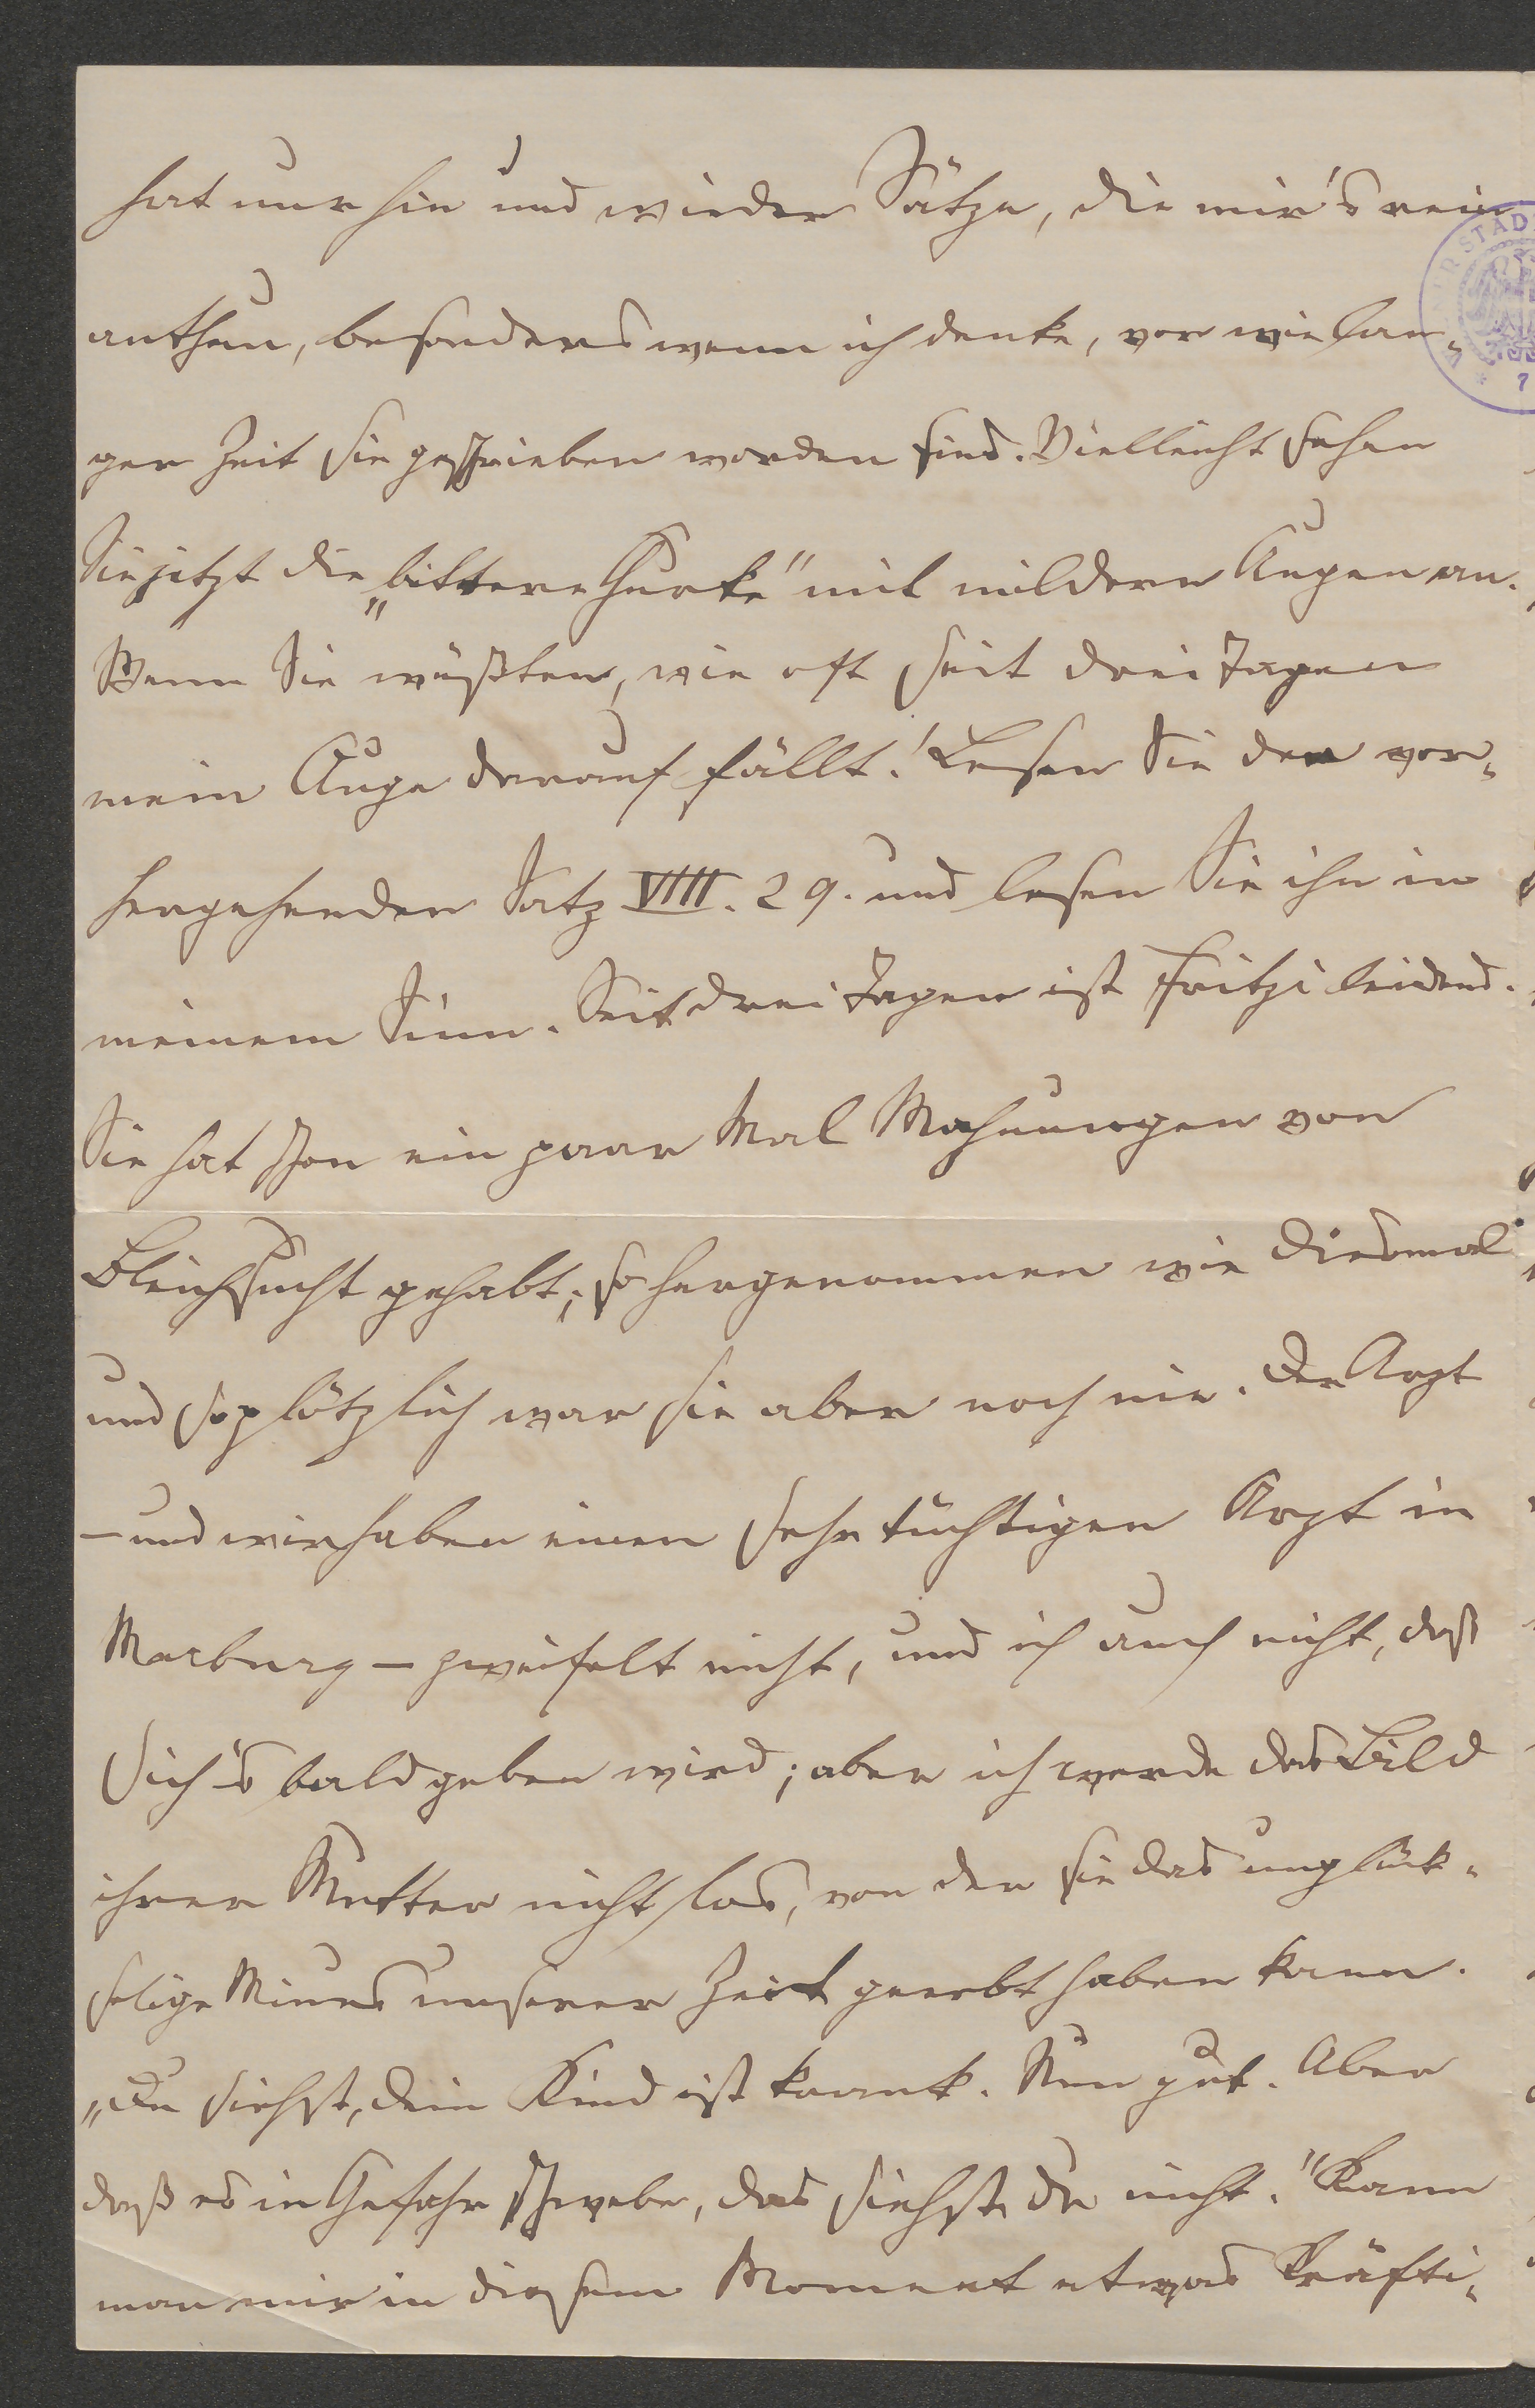 hat nur hin und wieder Sätze, die mir's rein
anthun, besonders wenn ich denke, vor wie lan-
ger Zeit sie geschrieben worden sind. Vielleicht sehen
Sie jetzt die „bittere Gurke" mit mildern Augen an.
Wenn Sie wüßten, wie oft seit drei Tagen
mein Auge darauf fällt! Lesen Sie den vor-
hergehenden Satz VIIII. 29. und lesen Sie ihn in
meinem Sinn. Seit drei Tagen ist Fritzi leidend.
Sie hat schon ein paar Mal Mahnungen von
Bleichsucht gehabt; so hergenommen wie diesmal
und so plötzlich war sie aber noch nie. Der Arzt
– und wir haben einen sehr tüchtigen Arzt in
Marburg – zweifelt nicht, und ich auch nicht, daß
sich's bald geben wird; aber ich werde das Bild
ihrer Mutter nicht los, von der sie das unglück-
selige Minus unserer Zeit geerbt haben kann.
„Du siehst, dein Kind ist krank. Nun gut. Aber
daß es in Gefahr schwebe, das siehst du nicht." Kann
man mir in diesem Moment etwas Kräfti-
STAD
7